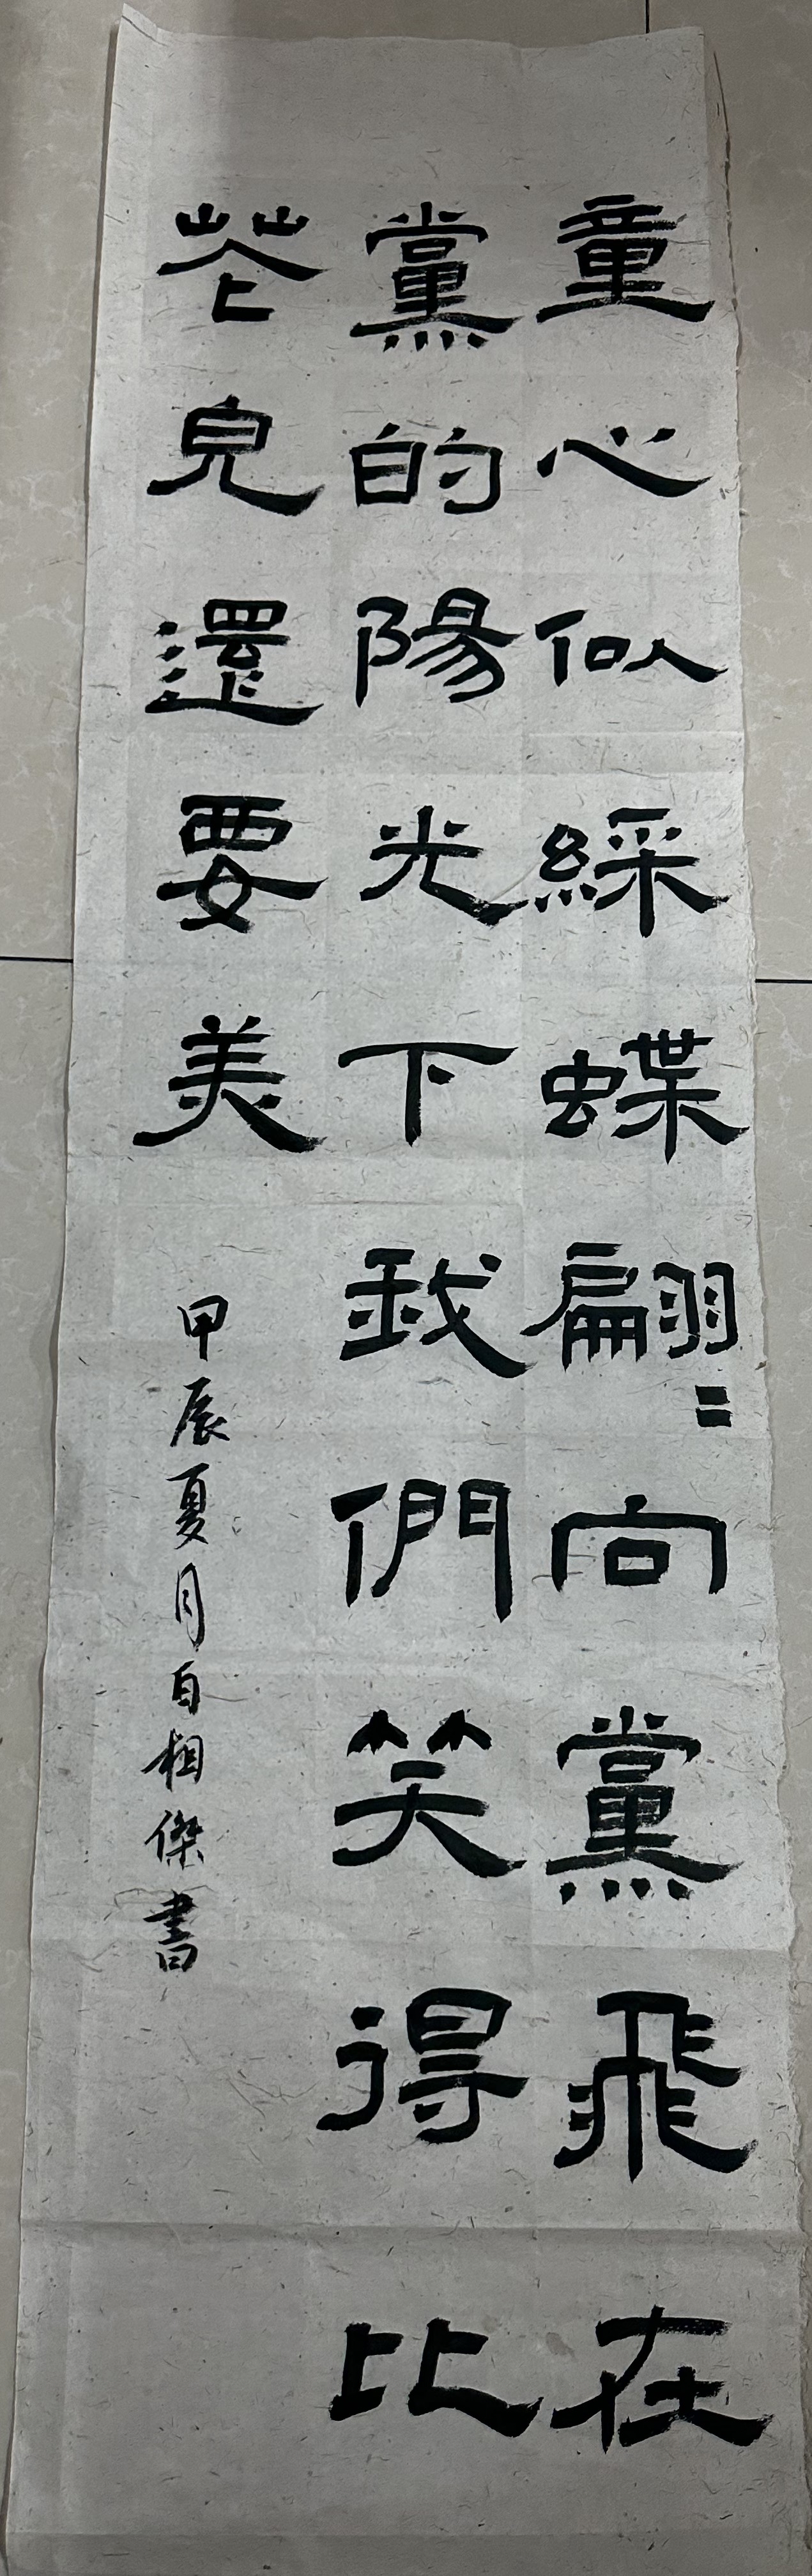 童心似綵蝶翩〻向黨飛在
黨的陽光下我們笑得比
花兒還要美
甲辰夏月白相傑書